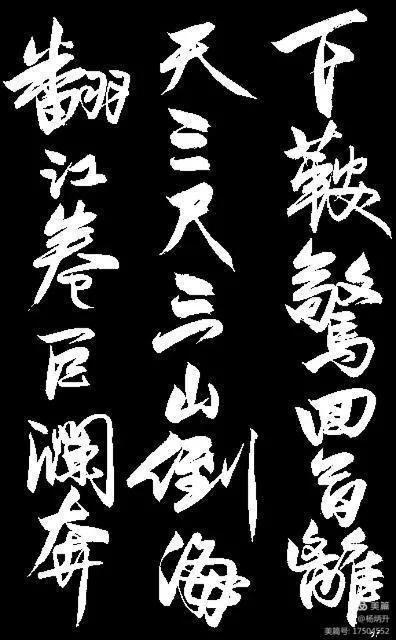 下鞍驚回首離
天三尺三山倒海
翻江卷巨瀾奔
美篇
@杨炳升
美篇号: 17504552